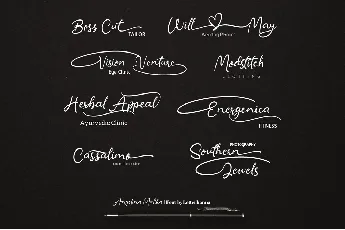 Boss Cut
TAILOR
Will May
Wedding Planner
Vision Venture
Eye Clinic
Modstitch
Herbal Appeal
Ayurvedic Clinic
Energenica
FITNESS
Cassalimo
PHOTOGRAPHY
Southern
Jewels
Font by Letterhanna